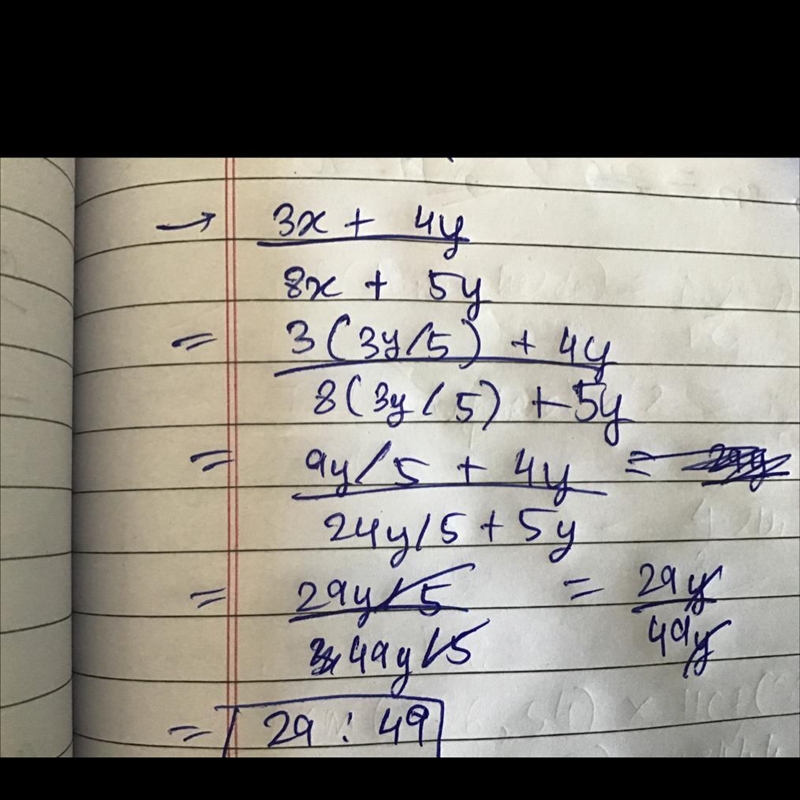 → 3x + 4y
8x + 5y
= 3(3y/5) + 4y
8(3y/5) + 5y
= 9y/5 + 4y =
24y/5 + 5y
= 29y/5 = 29y
49y/5 49y
= 29 : 49